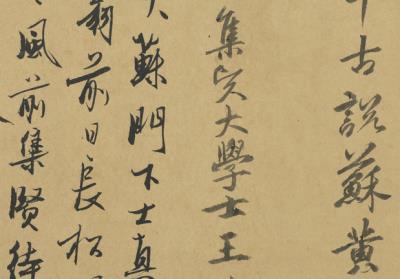 古說蘇黃
集賢大學士王
蘇門下士真
翁前日長松
風前集賢待